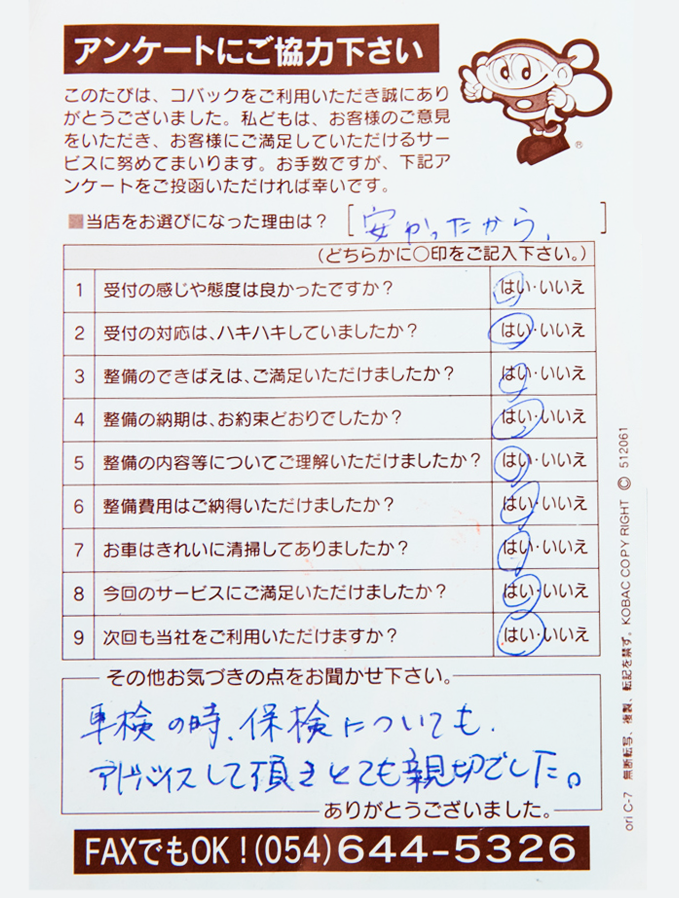 アンケートにご協力下さい
このたびは、コバックをご利用いただき誠にあり
がとうございました。私どもは、お客様のご意見
をいただき、お客様にご満足していただけるサー
ビスに努めてまいります。お手数ですが、下記ア
ンケートをご投函いただければ幸いです。
®
■当店をお選びになった理由は? [安かったから、]
(どちらかに○印をご記入下さい。)
1 受付の感じや態度は良かったですか? はい・いいえ
2 受付の対応は、ハキハキしていましたか? はい・いいえ
3 整備のできばえは、ご満足いただけましたか? はい・いいえ
4 整備の納期は、お約束どおりでしたか? はい・いいえ
5 整備の内容等についてご理解いただけましたか? はい・いいえ
6 整備費用はご納得いただけましたか? はい・いいえ
7 お車はきれいに清掃してありましたか? はい・いいえ
8 今回のサービスにご満足いただけましたか? はい・いいえ
9 次回も当社をご利用いただけますか? はい・いいえ
その他お気づきの点をお聞かせ下さい。
車検の時、保検についても、
アドバイスして頂きとても親切でした。
ありがとうございました。
FAXでもOK!(054)644-5326
ori C-7 無断転写、複製、転記を禁ず。KOBAC COPY RIGHT © 512061